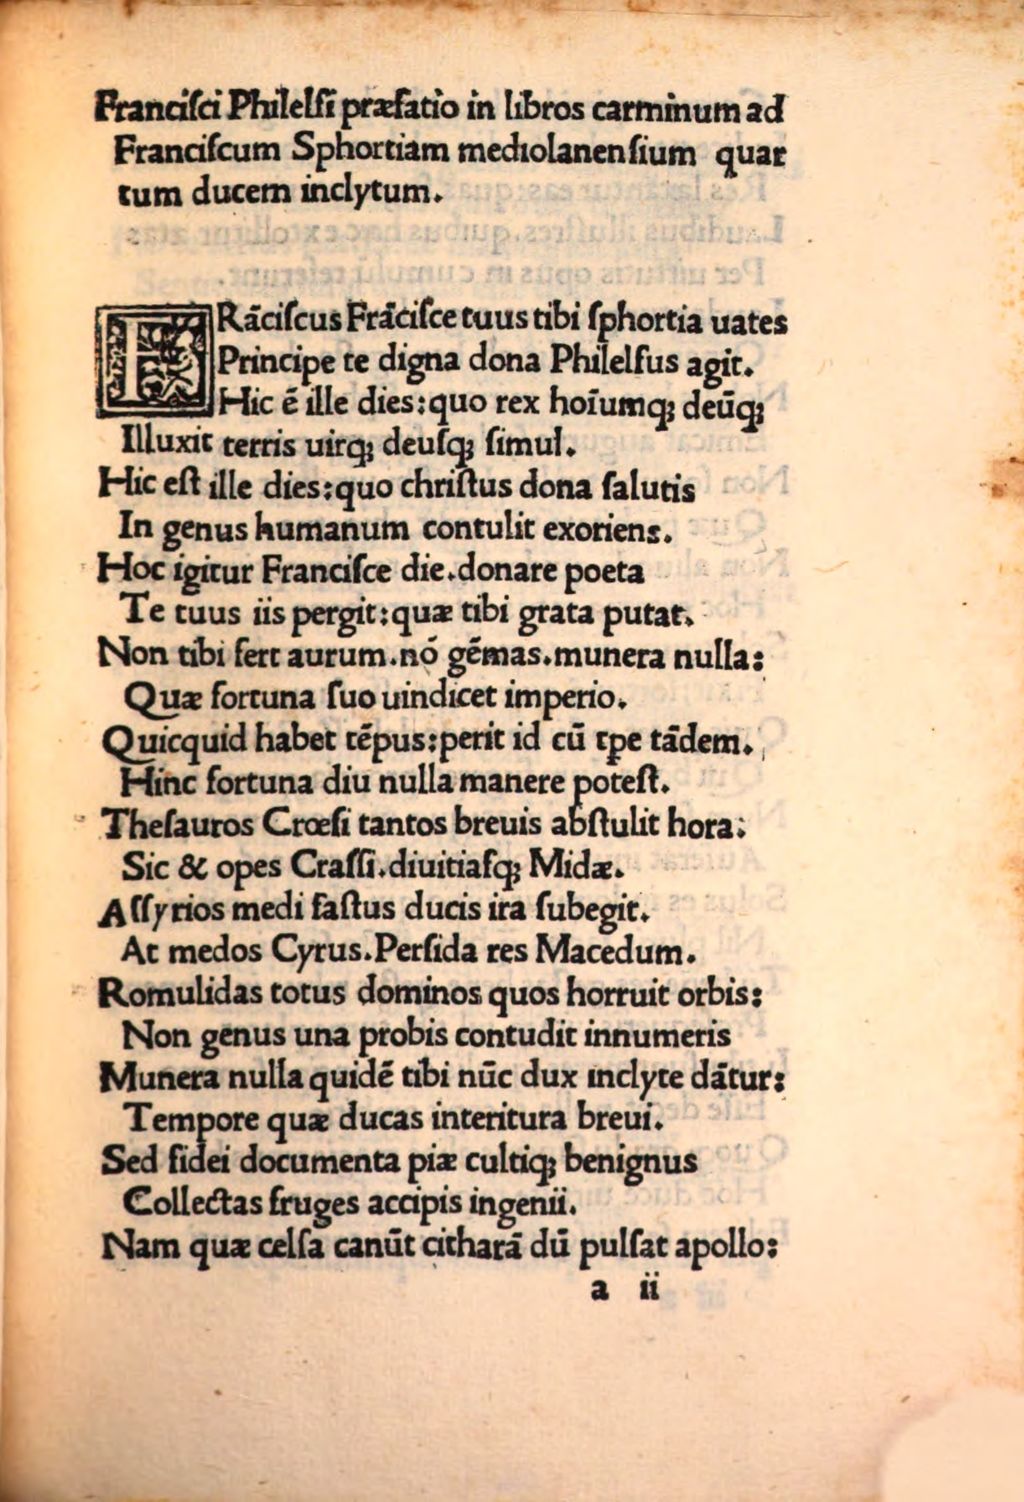 Franciſci Philelfi præfatio in libros carminum ad
Franciſcum Sphortiam mediolanenſium quar
tum ducem inclytum.
FRāciſcus Frāciſce tuus tibi ſphortia uates
Principe te digna dona Philelfus agit.
Hic ē ille dies:quo rex hoīumq; deūq;
Illuxit terris uirq; deuſq; ſimul.
Hic eſt ille dies:quo chriſtus dona ſalutis
In genus humanum contulit exoriens.
Hoc igitur Franciſce die.donare poeta
Te tuus iis pergit:quæ tibi grata putat.
Non tibi fert aurum.nō gēmas.munera nulla:
Quæ fortuna ſuo uindicet imperio.
Quicquid habet tēpus:perit id cū tpe tādem.
Hinc fortuna diu nulla manere poteſt.
Theſauros Crœſi tantos breuis abſtulit hora:
Sic & opes Craſſi.diuitiaſq; Midæ.
Aſſyrios medi faſtus ducis ira ſubegit.
At medos Cyrus.Perſida res Macedum.
Romulidas totus dominos quos horruit orbis:
Non genus una probis contudit innumeris
Munera nulla quidē tibi nūc dux inclyte dātur:
Tempore quæ ducas interitura breui.
Sed fidei documenta piæ cultiq; benignus
Collectas fruges accipis ingenii.
Nam quæ celſa canūt citharā dū pulſat apollo:
a ii